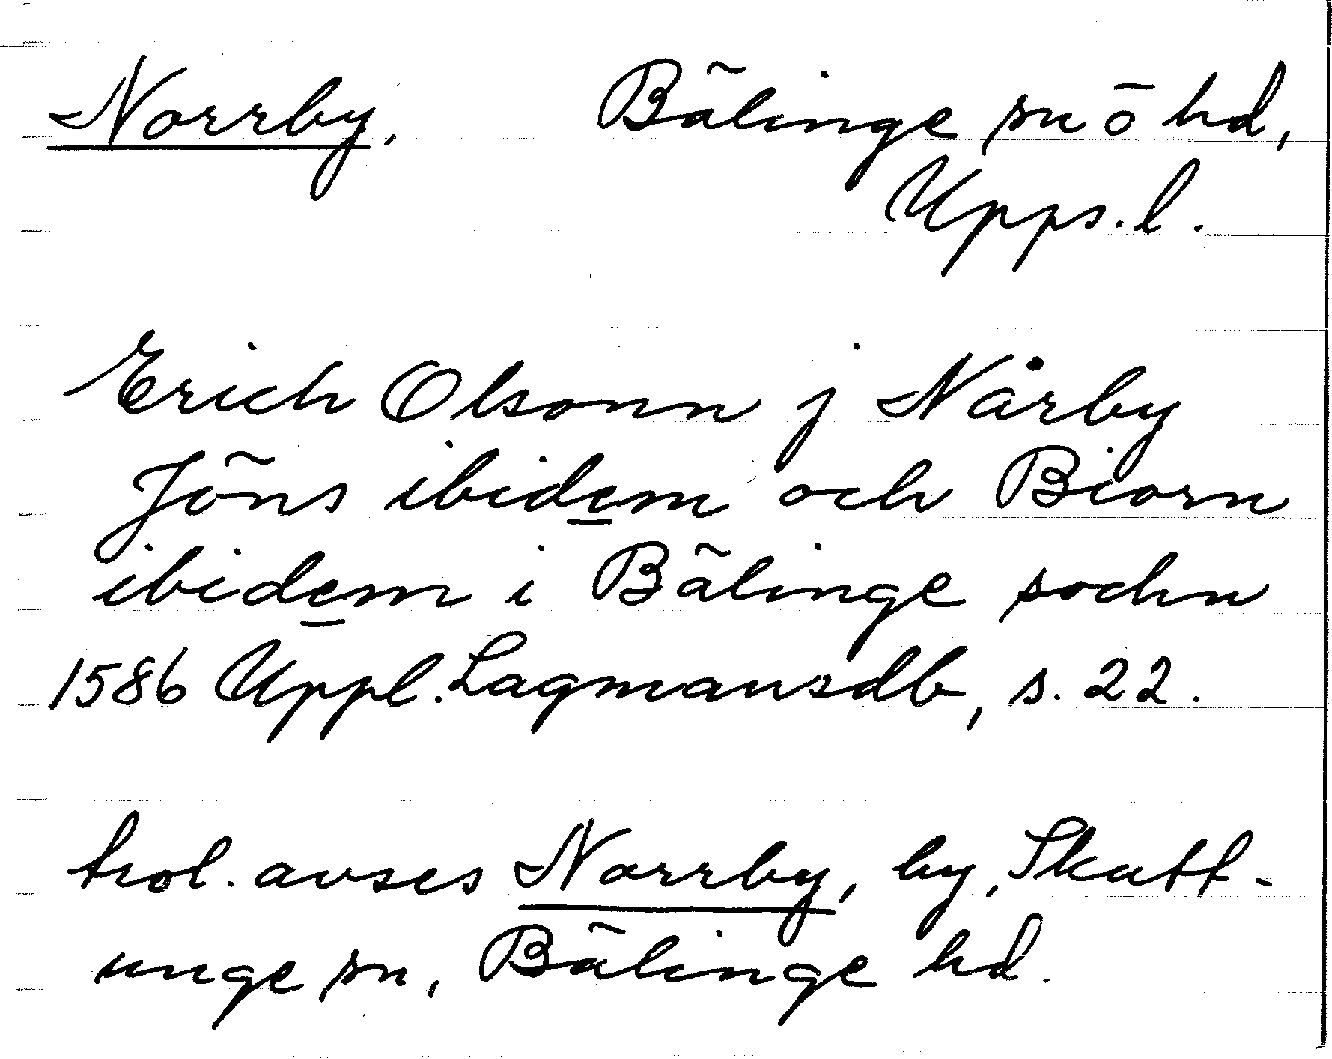 Norrby, Bälinge sn ō hd,
Upps. l.
Erich Olsonn j Nårby
Jöns ibidem och Biorn
ibidem i Bälinge sochn
1586 Uppl. Lagmansdb, s. 22.
trol. avses Norrby, by, Skutt-
unge sn, Bälinge hd.